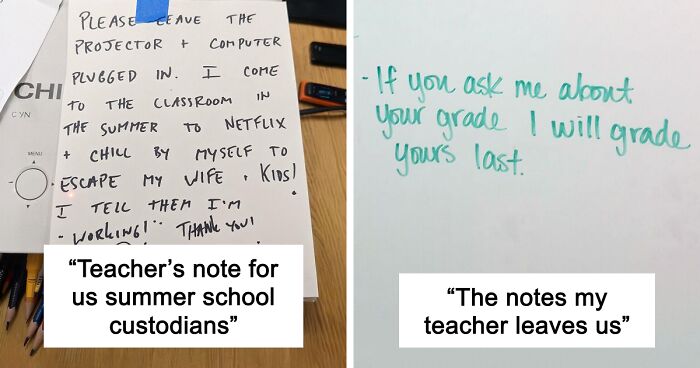 PLEASE LEAVE THE
PROJECTOR + COMPUTER
PLUGGED IN. I COME
TO THE CLASSROOM IN
THE SUMMER TO NETFLIX
+ CHILL BY MYSELF TO
ESCAPE MY WIFE + KIDS!
I TELL THEM I'M
WORKING! THANK YOU!
CHI
MENU
"Teacher's note for
us summer school
custodians"
- If you ask me about
your grade I will grade
yours last.
"The notes my
teacher leaves us"